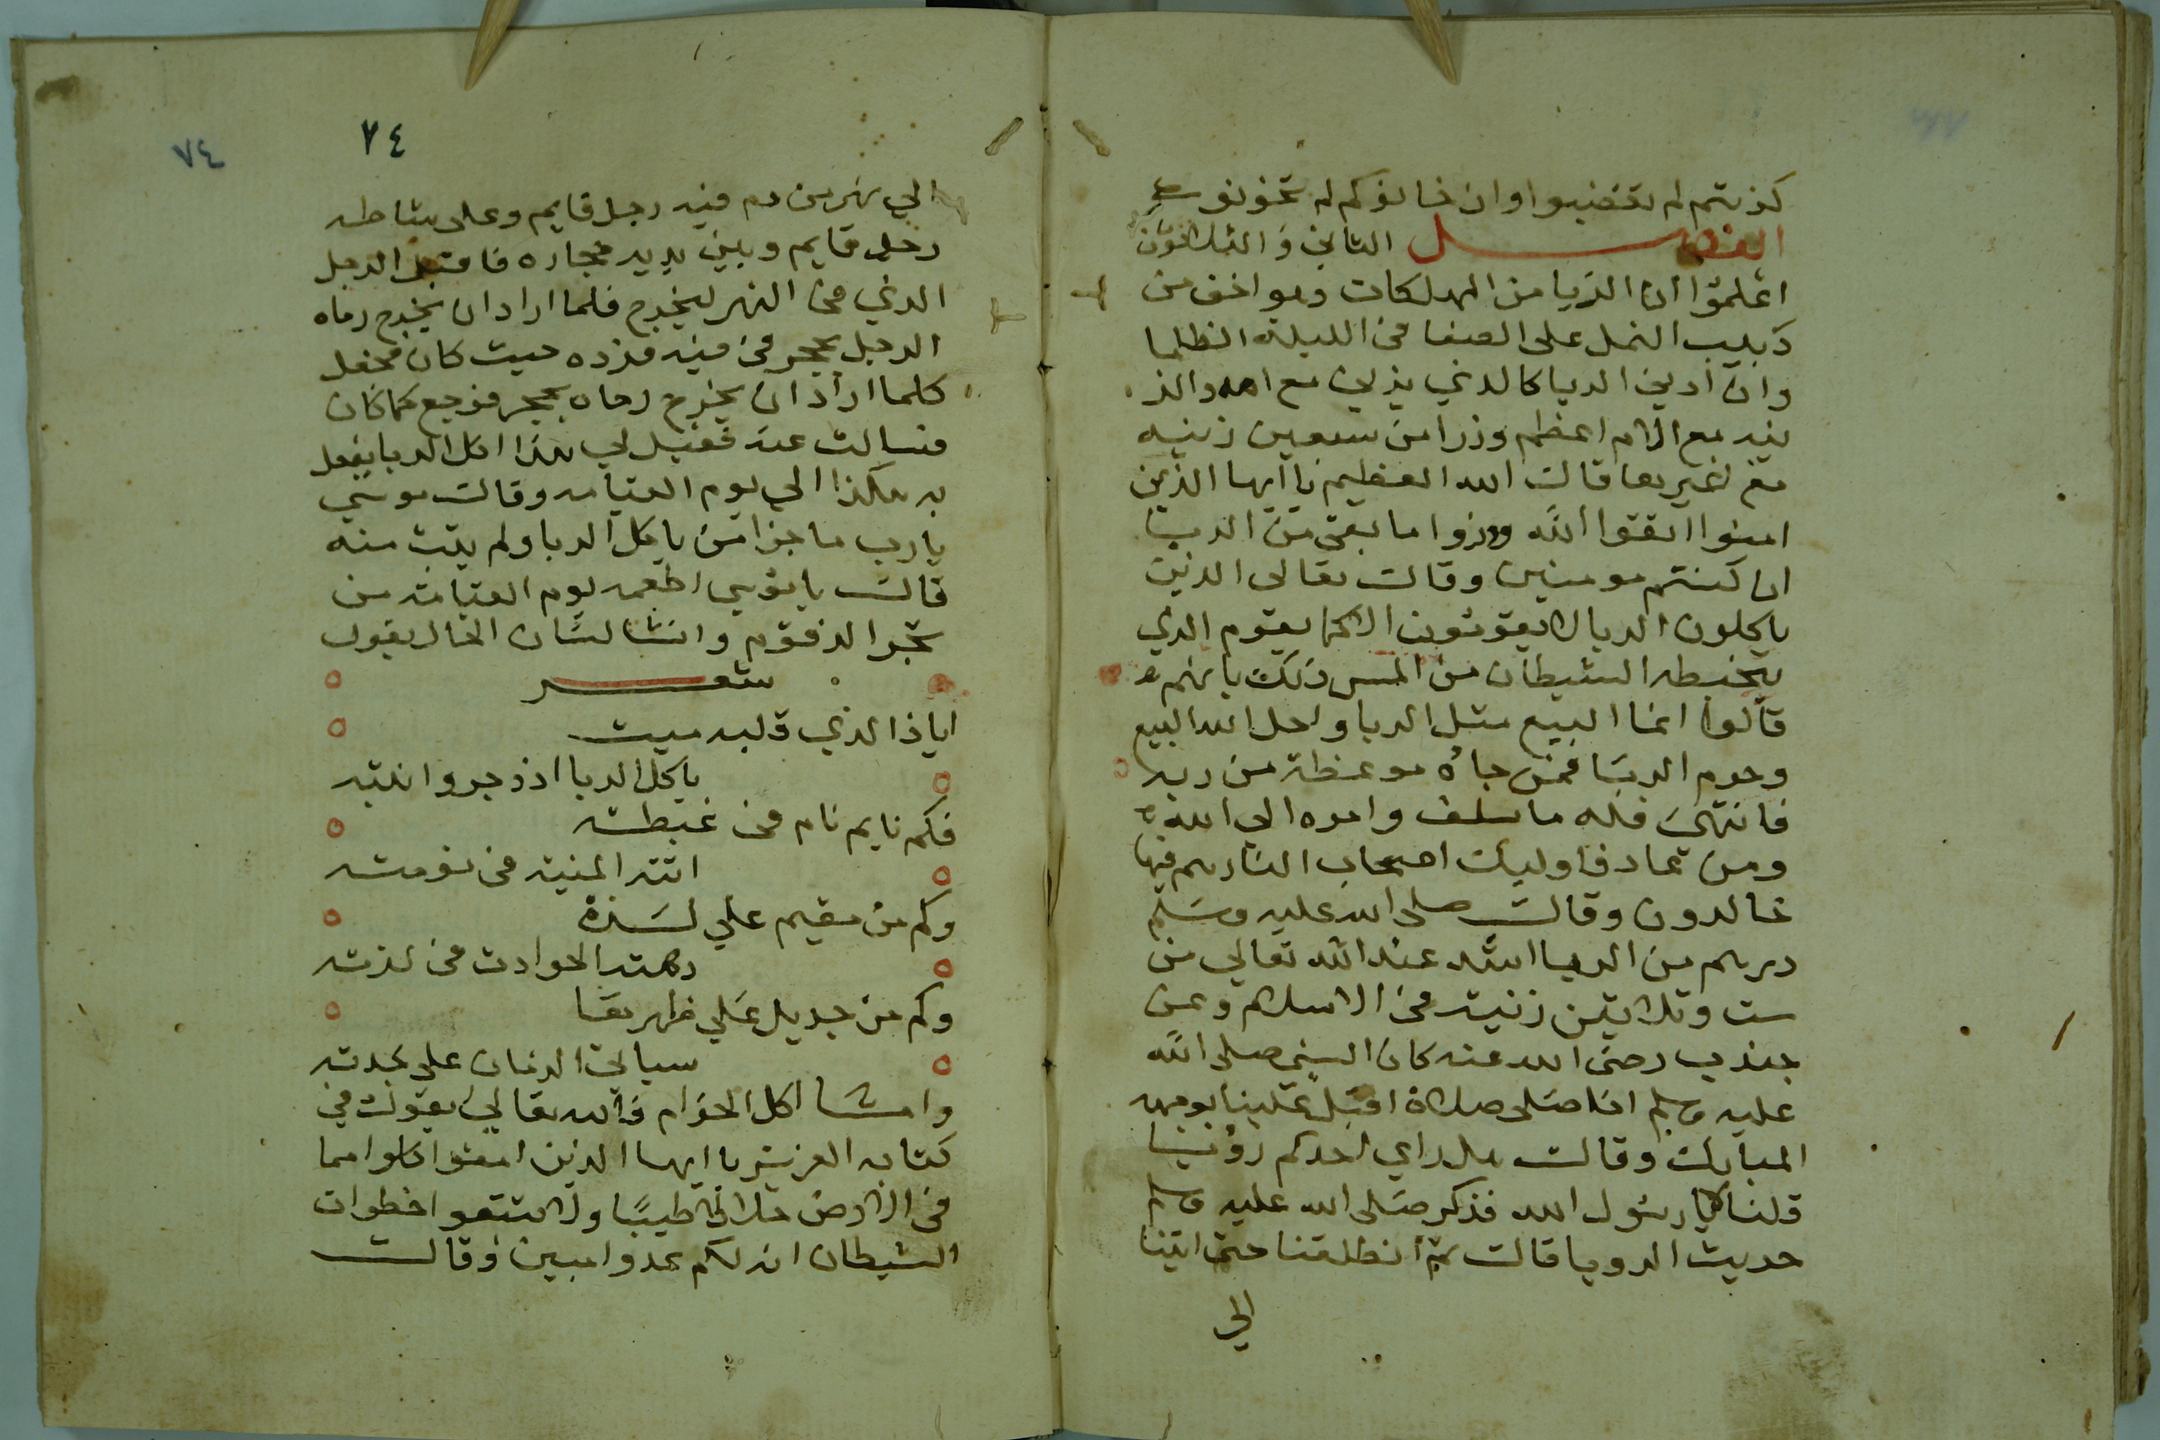 كذبتم لم تغضبوا وان خانوكم لم تخونوهم
الفصل الثاني والثلاثون
اعلموا ان الربا من المهلكات وهو اخف من
دبيب النمل على الصفا في الليلة الظلما
وان ادني الربا كالذي يزني مع امه والز
نيه مع الام اعظم وزرا من سبعين زنيه
مع غيرها قال الله العظيم يا ايها الذين
امنوا اتقوا الله وذروا ما بقي من الربا
ان كنتم مومنين وقال تعالى الذين
ياكلون الربا لا يقومون الا كما يقوم الذي
يتخبطه الشيطان من المس ذلك بانهم
قالوا انما البيع مثل الربا واحل الله البيع
وحرم الربا فمن جاه موعظة من ربه
فانتهى فله ما سلف وامره الي الله
ومن عاد فاوليك اصحاب النار هم فيها
خالدون وقال صلى الله عليه وسلم
درهم من الربا اشد عند الله تعالي من
ست وثلاثين زنيه في الاسلام وعن
جندب رضى الله عنه كان النبي صلى الله
عليه وسلم اذا صلى صلاة اقبل علينا بوجهه
المبارك وقال هل راي احدكم رؤيا
قلنا لا يا رسول الله فذكر صلى الله عليه وسلم
حديث الرويا قال ثم انطلقنا حتى اتينا
الي
٧٤
٧٤
الي نهر من دم فيه رجل قايم وعلى شاطه
رجل قايم وبين يديه حجاره فاقبل الرجل
الذي في النهر ليخرج فلما اراد ان يخرج رماه
الرجل بحجر في فيه فرده حيث كان فجعل
كلما اراد ان يخرج رماه بحجر فرجع كما كان
فسالت عنه فقيل لي هذا اكل الربا يفعل
به هكذا الي يوم القيامه وقال موسي
يارب ما جزا من ياكل الربا ولم يتب منه
قال يا موسي اطعمه يوم القيامة من
شجر الزقوم وانشا لسان الحال يقول
شعر
اياذا الذي قلبه ميت
باكل الربا ازدجر وانتبه
فكم نايم نام في غبطته
اتته المنيه في نومته
وكم من مقيم على لذة
دهته الحوادث في لذته
وكم من جديد على ظهرها
سياتي الزمان على جدته
وامـا اكل الحرام فالله تعالي يقول في
كتابه العزيز يا ايها الذين امنوا كلوا مما
في الارض حلالا طيبا ولا تتبعوا خطوات
الشيطان انه لكم عدوا مبين وقال